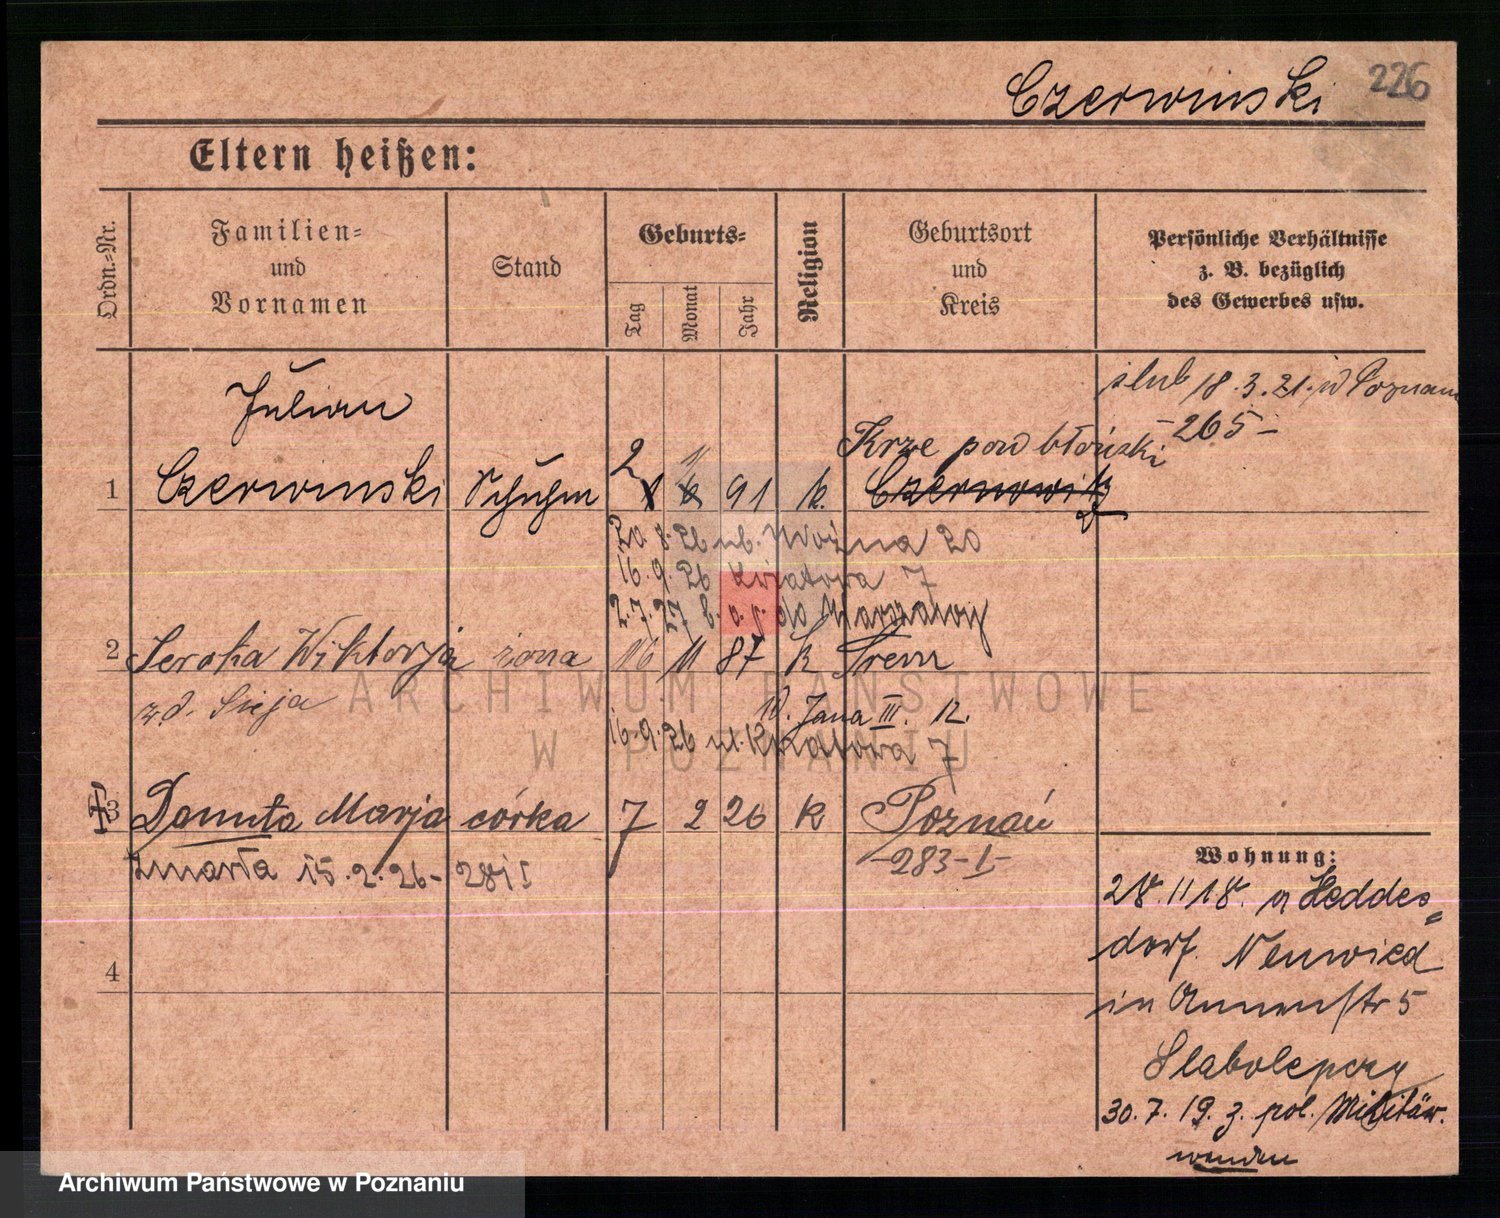 Czerwinski 226
Eltern heißen:
Ordn.=Nr.
Familien=
und
Vornamen
Stand
Geburts=
Tag
Monat
Jahr
Religion
Geburtsort
und
Kreis
Persönliche Verhältnisse
z. B. bezüglich
des Gewerbes usw.
ślub 18.3.21. w Poznaniu
-265-
Julian
1 Czerwinski Schuhm 2 1 11 6 91 k. Krze pow błoński
Czernowitz
20 8.26 ul. Woźna 20
16.9.26 Kwiatowa 7
2.7.27 do Warszawy
2 Seroka Wiktorja żona 16 11 87 k Srem
z d.
Jana III. 12.
16.9.26 ul. Kwiatowa 7
3 Danuta Marja córka 7 2 26 k Poznań
zmarła 15.2.26- 281 I
-283-I-
4
Wohnung:
28.11 18. n Heddes=
dorf. Neuwied
in Annenstr 5
30.7.19. z. pol. Militär.
wenden
ARCHIWUM PAŃSTWOWE
W POZNANIU
Archiwum Państwowe w Poznaniu